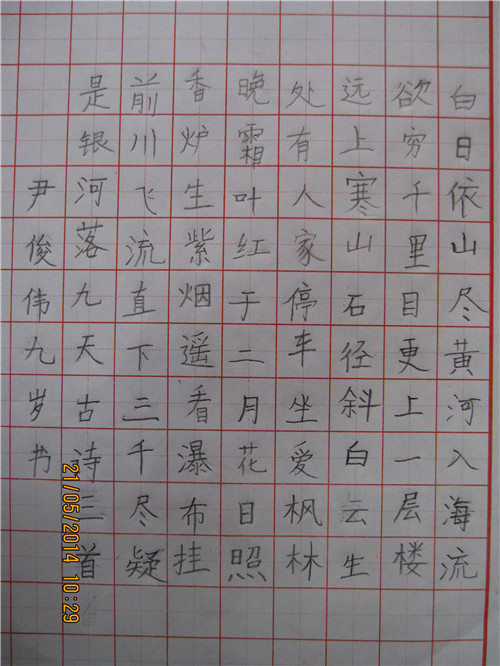 白日依山尽黄河入海流
欲穷千里目更上一层楼
远上寒山石径斜白云生
处有人家停车坐爱枫林
晚霜叶红于二月花日照
香炉生紫烟遥看瀑布挂
前川飞流直下三千尽疑
是银河落九天古诗三首
尹俊伟九岁书
21/05/2014 10:29